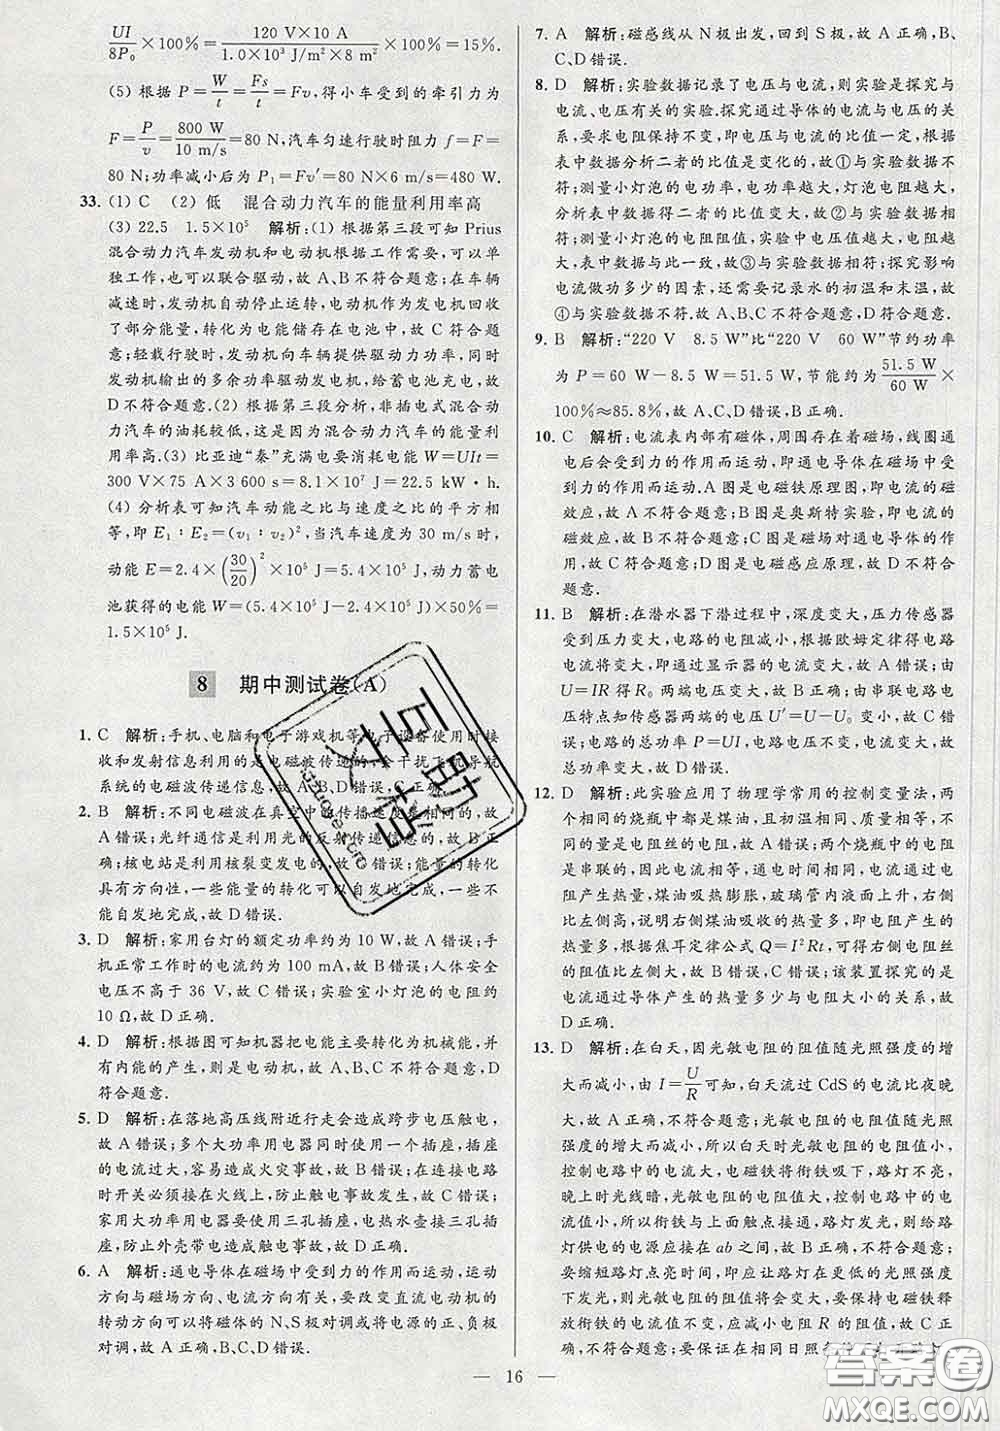 UI/8P₀×100%=120 V×10 A/1.0×10³ J/m²×8 m²×100%=15%.
(5) 根据 P=W/t=Fs/t=Fv,得小车受到的牵引力为
F=P/v=800 W/10 m/s=80 N,汽车匀速行驶时阻力 f=F=
80 N;功率减小后为 P₁=Fv′=80 N×6 m/s=480 W.
33. (1) C (2) 低 混合动力汽车的能量利用率高
(3) 22.5 1.5×10⁵ 解析:(1) 根据第三段可知 Prius
混合动力汽车发动机和电动机根据工作需要,可以单
独工作,也可以联合驱动,故 A、B 不符合题意;在车辆
减速时,发动机自动停止运转,电动机作为发电机回收
了部分能量,转化为电能储存在电池中,故 C 符合题
意;轻载行驶时,发动机向车辆提供驱动力功率,同时
发动机输出的多余功率驱动发电机,给蓄电池充电,故
D 不符合题意.(2) 根据第三段分析,非插电式混合动
力汽车的油耗较低,这是因为混合动力汽车的能量利
用率高.(3) 比亚迪“秦”充满电要消耗电能 W=UIt=
300 V×75 A×3 600 s=8.1×10⁷ J=22.5 kW·h.
(4) 分析表可知汽车动能之比与速度之比的平方相
等,即 E₁∶E₂=(v₁∶v₂)²,当汽车速度为 30 m/s 时,
动能 E=2.4×(30/20)²×10⁵ J=5.4×10⁵ J,动力蓄电
池获得的电能 W=(5.4×10⁵ J-2.4×10⁵ J)×50%=
1.5×10⁵ J.
8 期中测试卷(A)
1. C 解析:手机、电脑和电子游戏机等电子设备使用时接
收和发射信息利用的是电磁波传递的,会干扰飞机导航
系统的电磁波传递信息,故 A、B、D 错误,C 正确.
2. B 解析:不同电磁波在真空中的传播速度是相同的,故
A 错误;光纤通信是利用光的反射传递信息的,故 B 正
确;核电站是利用核裂变发电的,故 C 错误;能量的转化
具有方向性,一些能量的转化可以自发地完成,一些不能
自发地完成,故 D 错误.
3. D 解析:家用台灯的额定功率约为 10 W,故 A 错误;手
机正常工作时的电流约为 100 mA,故 B 错误;人体安全
电压不高于 36 V,故 C 错误;实验室小灯泡的电阻约
10 Ω,故 D 正确.
4. D 解析:根据图可知机器把电能主要转化为机械能,并
有内能的产生,则是电动机,故 A、B、C 不符合题意,D
符合题意.
5. D 解析:在落地高压线附近行走会造成跨步电压触电,
故 A 错误;多个大功率用电器同时使用一个插座,插座
的电流过大,容易造成火灾事故,故 B 错误;在连接电路
时开关必须接在火线上,防止触电事故发生,故 C 错误;
家用大功率用电器要使用三孔插座,电热水壶接三孔插
座,防止外壳带电造成触电事故,故 D 正确.
6. A 解析:通电导体在磁场中受到力的作用而运动,运动
方向与磁场方向、电流方向有关,要改变直流电动机的
转动方向可以将磁体的 N、S 极对调或将电源的正、负极
对调,故 A 正确,B、C、D 错误.
7. A 解析:磁感线从 N 极出发,回到 S 极,故 A 正确,B、
C、D 错误.
8. D 解析:实验数据记录了电压与电流,则实验是探究与
电流、电压有关的实验.探究通过导体的电流与电压的关
系,要求电阻保持不变,即电压与电流的比值一定,根据
表中数据分析二者的比值是变化的,故①与实验数据不
符;测量小灯泡的电功率,电功率越大,灯泡电阻越大,
表中数据得二者的比值变大,故②与实验数据相
符;测量小灯泡的电阻阻值,实验中电压值越大,电阻越
大,实验数据与此一致,故③与实验数据相符;探究影响
电流做功多少的因素,还需要记录水的初温和末温,故
④与实验数据不符.故 A、B、C 不符合题意,D 符合题意.
9. B 解析:“220 V 8.5 W”比“220 V 60 W”节约功率
为 P=60 W-8.5 W=51.5 W,节能约为51.5 W/60 W×
100%≈85.8%,故 A、C、D 错误,B 正确.
10. C 解析:电流表内部有磁体,周围存在着磁场,线圈通
电后会受到力的作用而运动,即通电导体在磁场中受
到力的作用而运动.A 图是电磁铁原理图,即电流的磁
效应,故 A 不符合题意;B 图是奥斯特实验,即电流的
磁效应,故 B 不符合题意;C 图是磁场对通电导体的作
用,故 C 符合题意;D 图是电磁感应原理,故 D 不符合
题意.
11. B 解析:在潜水器下潜过程中,深度变大,压力传感器
受到压力变大,电路的电阻减小,根据欧姆定律得电路
中电流变大,故 A 错误;R₀ 的阻值不变,电流变大,由
U=IR 得 R₀ 两端电压变大,故 B 正确;由串联电路电
压特点知传感器两端的电压 U′=U-U₀ 变小,故 C 错
误;电路的总功率 P=UI,电路电压不变,电流变大,故
总功率变大,故 D 错误.
12. D 解析:此实验应用了物理学常用的控制变量法,两
个相同的烧瓶中都是煤油,且初温相同、质量相等,不
同的量是电阻丝的电阻,故 A 错误;两个烧瓶中电阻丝
是串联的,因此电流相等,通电时间相同,故 B 错误;通
电后产生热量,煤油吸热膨胀,玻璃管内液面上升,右侧
比左侧高,说明右侧煤油吸收的热量多,即电阻产生的
热量多,根据焦耳定律公式 Q=I²Rt,可得右侧电阻丝
的阻值比左侧大,故 C 错误;该装置探究的是
电流通过导体产生的热量多少与电阻大小的关系,故
D 正确.
13. D 解析:在白天,因光敏电阻的阻值随光照强度的增
大而减小,由 I=U/R可知,白天流过 CdS 的电流比夜晚
大,故 A 正确,不符合题意;光敏电阻的阻值随光照
强度的增大而减小,所以白天时光敏电阻的阻值小,
控制电路中的电流大,电磁铁将衔铁吸下,路灯不亮,
晚上时光线暗,光敏电阻的阻值大,控制电路中的电流
小,所以衔铁与上面触点接通,路灯发光,则给路
灯供电的电源应接在 ab 之间,故 B 正确,不符合题意;
要缩短路灯点亮时间,即应让路灯在更暗的光照强度
下发光,则光敏电阻的阻值将会变大,要保持电磁铁释
放衔铁的电流不变,应减小电阻 R 的阻值,故 C 正
确,不符合题意;要保证在相同日照
16
答案圈
MXQE.COM